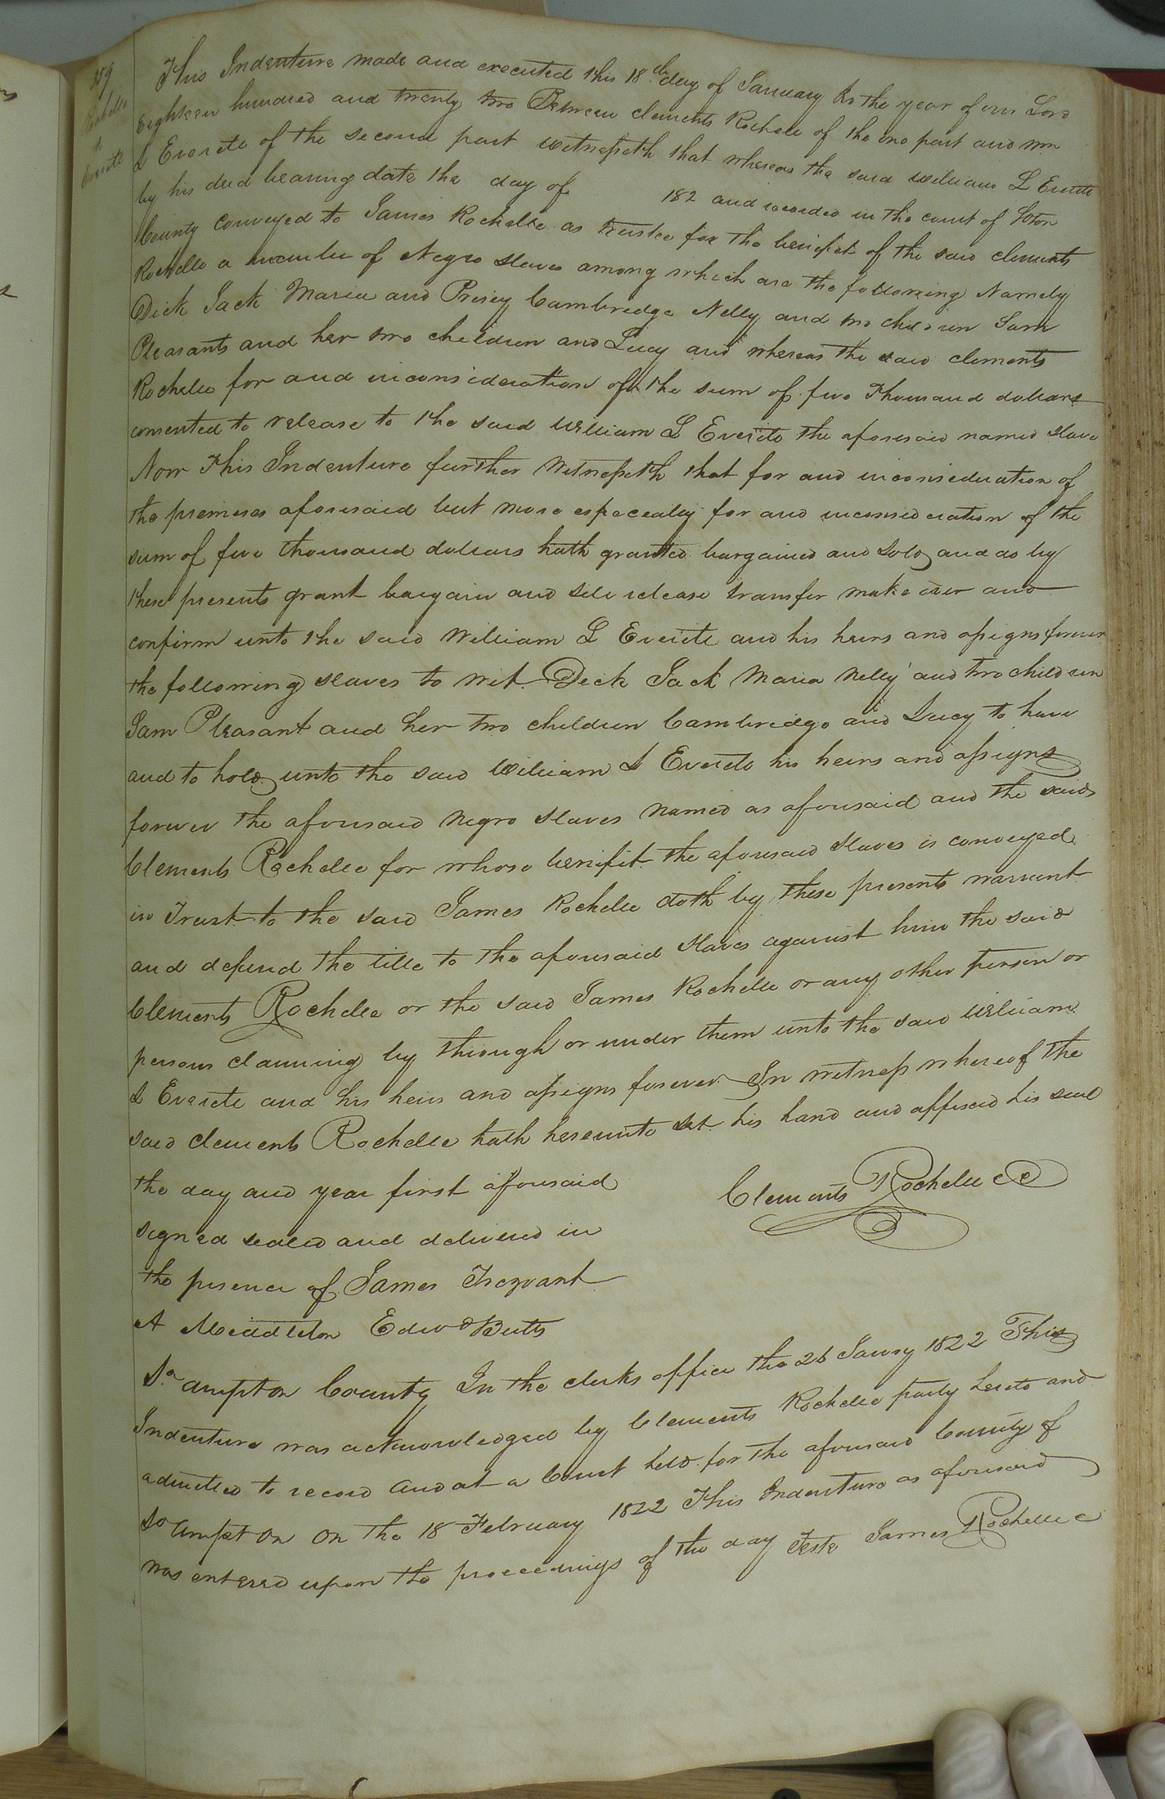 359
Rochelle
to
Everite
This Indenture made and executed this 18th day of January In the year of our Lord
Eighteen hundred and twenty two Between Clements Rochelle of the one part and Wm
L Everite of the second part witnesseth that whereas the said William L Everite
by his deed bearing date the day of 182 and recorded in the court of Soton
County conveyed to James Rochelle as trustee for the benifit of the said Clements
Rochelle a number of Negro slaves among which are the following Namely
Dick Jack Maria and Presiey Cambridge Nelly and two children Sam
Pleasants and her two children and Lucy and whereas the said Clements
Rochelle for and inconsideration of the sum of five Thousand dollars
consented to release to the said William L Everite the aforesaid named slave
Now This Indenture further Witnesseth that for and inconsideration of
the premises aforesaid but more especealy for and inconsideration of the
sum of five thousand dollars hath granted bargained and sold and do by
these presents grant bargain and sell release transfer make over and
confirm unto the said William L Everite and his heirs and assigns forever
the following slaves to wit Dick Jack Maria Nelly and two children
Sam Pleasant and her two children Cambridge and Lucy to have
and to hold unto the said William L Everite his heirs and assigns
forever the aforesaid Negro slaves named as aforesaid and the said
Clements Rochelle for whose benifit the aforesaid slaves is conveyed
in Trust to the said James Rochelle doth by these presents warrant
and defend the title to the aforesaid slaves against him the said
Clements Rochelle or the said James Rochelle or any other person or
persons claiming by through or under them unto the said William
L Everite and his heirs and assigns forever In witness whereof the
said Clements Rochelle hath hereunto set his hand and affixed his seal
the day and year first aforesaid
Clements Rochelle
signed sealed and delivered in
the presence of James Trezvant
A Middleton Edwd Butts
So ampton County In the clerks office the 26 Janry 1822 This
Indenture was acknowledged by Clements Rochelle party hereto and
admitted to record And at a Court held for the aforesaid County of
So ampton on the 18 February 1822 This Indenture as aforesaid
was entered upon the proceedings of the day Teste James Rochelle c